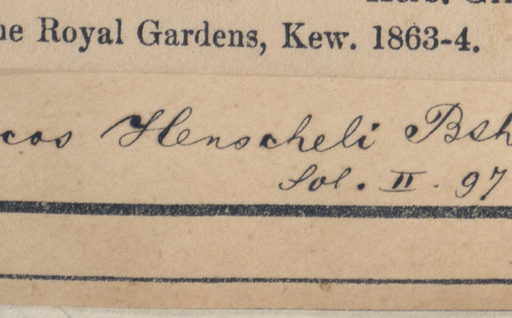 he Royal Gardens, Kew. 1863-4.
cos Henscheli Bsh
Sol. II. 97